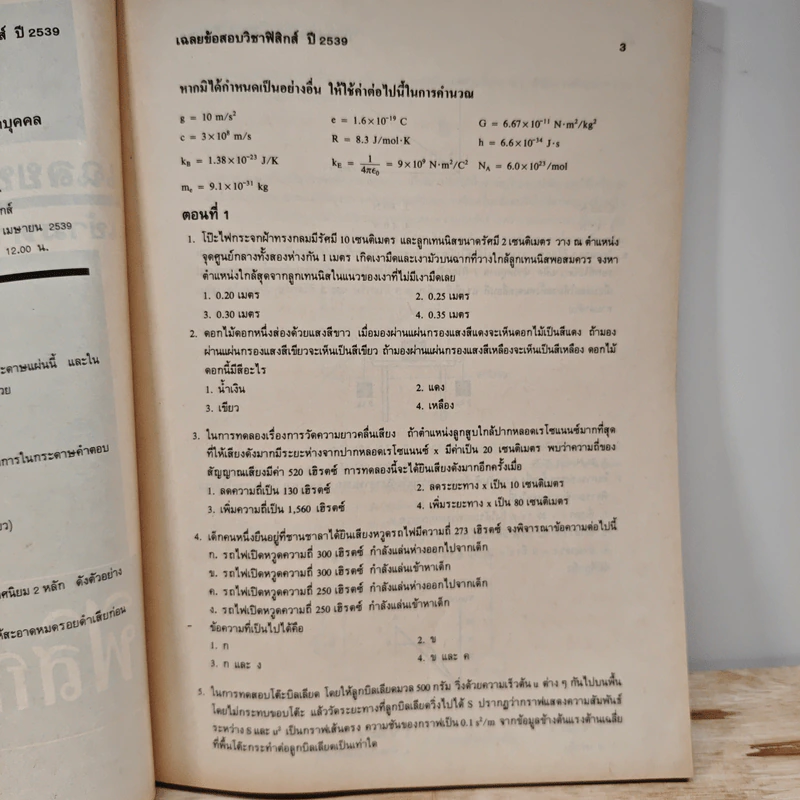 ส์ ปี 2539
บุคคล
กส์
เมษายน 2539
12.00 น.
ะดาษแผ่นนี้ และใน
วย
การในกระดาษคำตอบ
ว)
ศนิยม 2 หลัก ดังตัวอย่าง
ให้สะอาดหมดรอยดำเสียก่อน
เฉลยข้อสอบวิชาฟิสิกส์ ปี 2539
3
หากมิได้กำหนดเป็นอย่างอื่น ให้ใช้ค่าต่อไปนี้ในการคำนวณ
g = 10 m/s² e = 1.6×10⁻¹⁹ C G = 6.67×10⁻¹¹ N·m²/kg²
c = 3×10⁸ m/s R = 8.3 J/mol·K h = 6.6×10⁻³⁴ J·s
k_B = 1.38×10⁻²³ J/K k_E = 1/4πε₀ = 9×10⁹ N·m²/C² N_A = 6.0×10²³/mol
m_e = 9.1×10⁻³¹ kg
ตอนที่ 1
1. โป๊ะไฟกระจกฝ้าทรงกลมมีรัศมี 10 เซนติเมตร และลูกเทนนิสขนาดรัศมี 2 เซนติเมตร วาง ณ ตำแหน่ง
จุดศูนย์กลางทั้งสองห่างกัน 1 เมตร เกิดเงามืดและเงามัวบนฉากที่วางใกล้ลูกเทนนิสพอสมควร จงหา
ตำแหน่งใกล้สุดจากลูกเทนนิสในแนวของเงาที่ไม่มีเงามืดเลย
1. 0.20 เมตร 2. 0.25 เมตร
3. 0.30 เมตร 4. 0.35 เมตร
2. ดอกไม้ดอกหนึ่งส่องด้วยแสงสีขาว เมื่อมองผ่านแผ่นกรองแสงสีแดงจะเห็นดอกไม้เป็นสีแดง ถ้ามอง
ผ่านแผ่นกรองแสงสีเขียวจะเห็นเป็นสีเขียว ถ้ามองผ่านแผ่นกรองแสงสีเหลืองจะเห็นเป็นสีเหลือง ดอกไม้
ดอกนี้มีสีอะไร
1. น้ำเงิน 2. แดง
3. เขียว 4. เหลือง
3. ในการทดลองเรื่องการวัดความยาวคลื่นเสียง ถ้าตำแหน่งลูกสูบใกล้ปากหลอดเรโซแนนซ์มากที่สุด
ที่ให้เสียงดังมากมีระยะห่างจากปากหลอดเรโซแนนซ์ x มีค่าเป็น 20 เซนติเมตร พบว่าความถี่ของ
สัญญาณเสียงมีค่า 520 เฮิรตซ์ การทดลองนี้จะได้ยินเสียงดังมากอีกครั้งเมื่อ
1. ลดความถี่เป็น 130 เฮิรตซ์ 2. ลดระยะทาง x เป็น 10 เซนติเมตร
3. เพิ่มความถี่เป็น 1,560 เฮิรตซ์ 4. เพิ่มระยะทาง x เป็น 80 เซนติเมตร
4. เด็กคนหนึ่งยืนอยู่ที่ชานชาลาได้ยินเสียงหวูดรถไฟมีความถี่ 273 เฮิรตซ์ จงพิจารณาข้อความต่อไปนี้
ก. รถไฟเปิดหวูดความถี่ 300 เฮิรตซ์ กำลังแล่นห่างออกไปจากเด็ก
ข. รถไฟเปิดหวูดความถี่ 300 เฮิรตซ์ กำลังแล่นเข้าหาเด็ก
ค. รถไฟเปิดหวูดความถี่ 250 เฮิรตซ์ กำลังแล่นห่างออกไปจากเด็ก
ง. รถไฟเปิดหวูดความถี่ 250 เฮิรตซ์ กำลังแล่นเข้าหาเด็ก
ข้อความที่เป็นไปได้คือ
1. ก 2. ข
3. ก และ ง 4. ข และ ค
5. ในการทดสอบโต๊ะบิลเลียด โดยให้ลูกบิลเลียดมวล 500 กรัม วิ่งด้วยความเร็วต้น u ต่าง ๆ กันไปบนพื้น
โดยไม่กระทบขอบโต๊ะ แล้ววัดระยะทางที่ลูกบิลเลียดวิ่งไปได้ S ปรากฏว่ากราฟแสดงความสัมพันธ์
ระหว่าง S และ u² เป็นกราฟเส้นตรง ความชันของกราฟเป็น 0.1 s²/m จากข้อมูลข้างต้นแรงต้านเฉลี่ย
ที่พื้นโต๊ะกระทำต่อลูกบิลเลียดเป็นเท่าใด